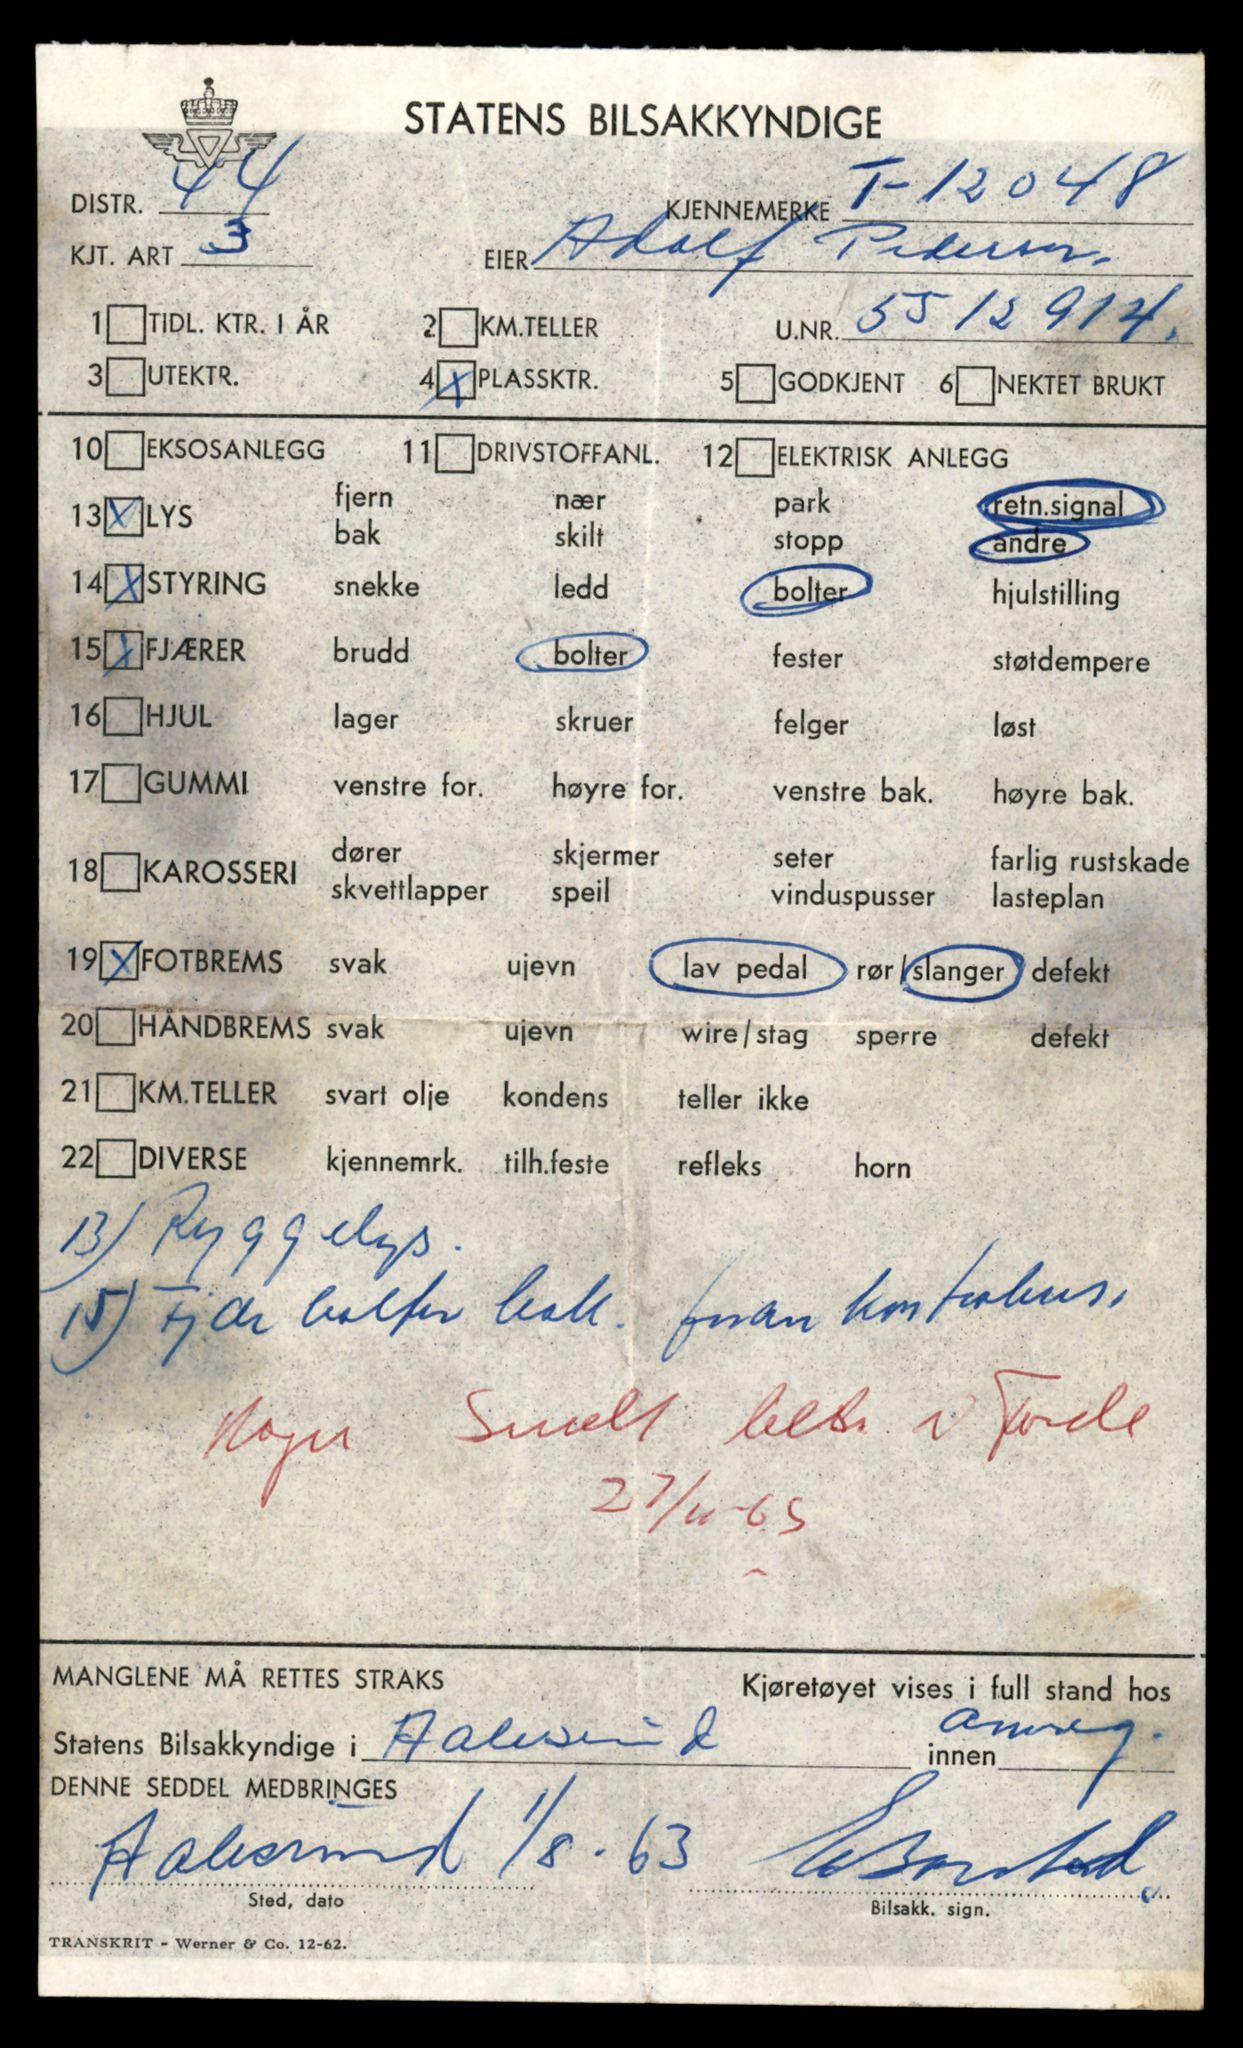 STATENS BILSAKKYNDIGE
DISTR. 44 KJENNEMERKE T-12048
KJT. ART 3 EIER Adolf Pedersen.
1 TIDL. KTR. I ÅR 2 KM.TELLER U.NR. 5512914.
3 UTEKTR. 4 X PLASSKTR. 5 GODKJENT 6 NEKTET BRUKT
10 EKSOSANLEGG 11 DRIVSTOFFANL. 12 ELEKTRISK ANLEGG
13 X LYS fjern nær park retn.signal
bak skilt stopp andre
14 X STYRING snekke ledd bolter hjulstilling
15 X FJÆRER brudd bolter fester støtdempere
16 HJUL lager skruer felger løst
17 GUMMI venstre for. høyre for. venstre bak. høyre bak.
18 KAROSSERI dører skjermer seter farlig rustskade
skvettlapper speil vinduspusser lasteplan
19 X FOTBREMS svak ujevn lav pedal rør/slanger defekt
20 HÅNDBREMS svak ujevn wire/stag sperre defekt
21 KM.TELLER svart olje kondens teller ikke
22 DIVERSE kjennemrk. tilh.feste refleks horn
13) Ryggelys.
15) Fjær bolter bak. foran
i Førde
MANGLENE MÅ RETTES STRAKS Kjøretøyet vises i full stand hos
Statens Bilsakkyndige i Aalesund innen omreg.
DENNE SEDDEL MEDBRINGES
Aalesund 1/8-63
Sted, dato Bilsakk. sign.
TRANSKRIT - Werner & Co. 12-62.